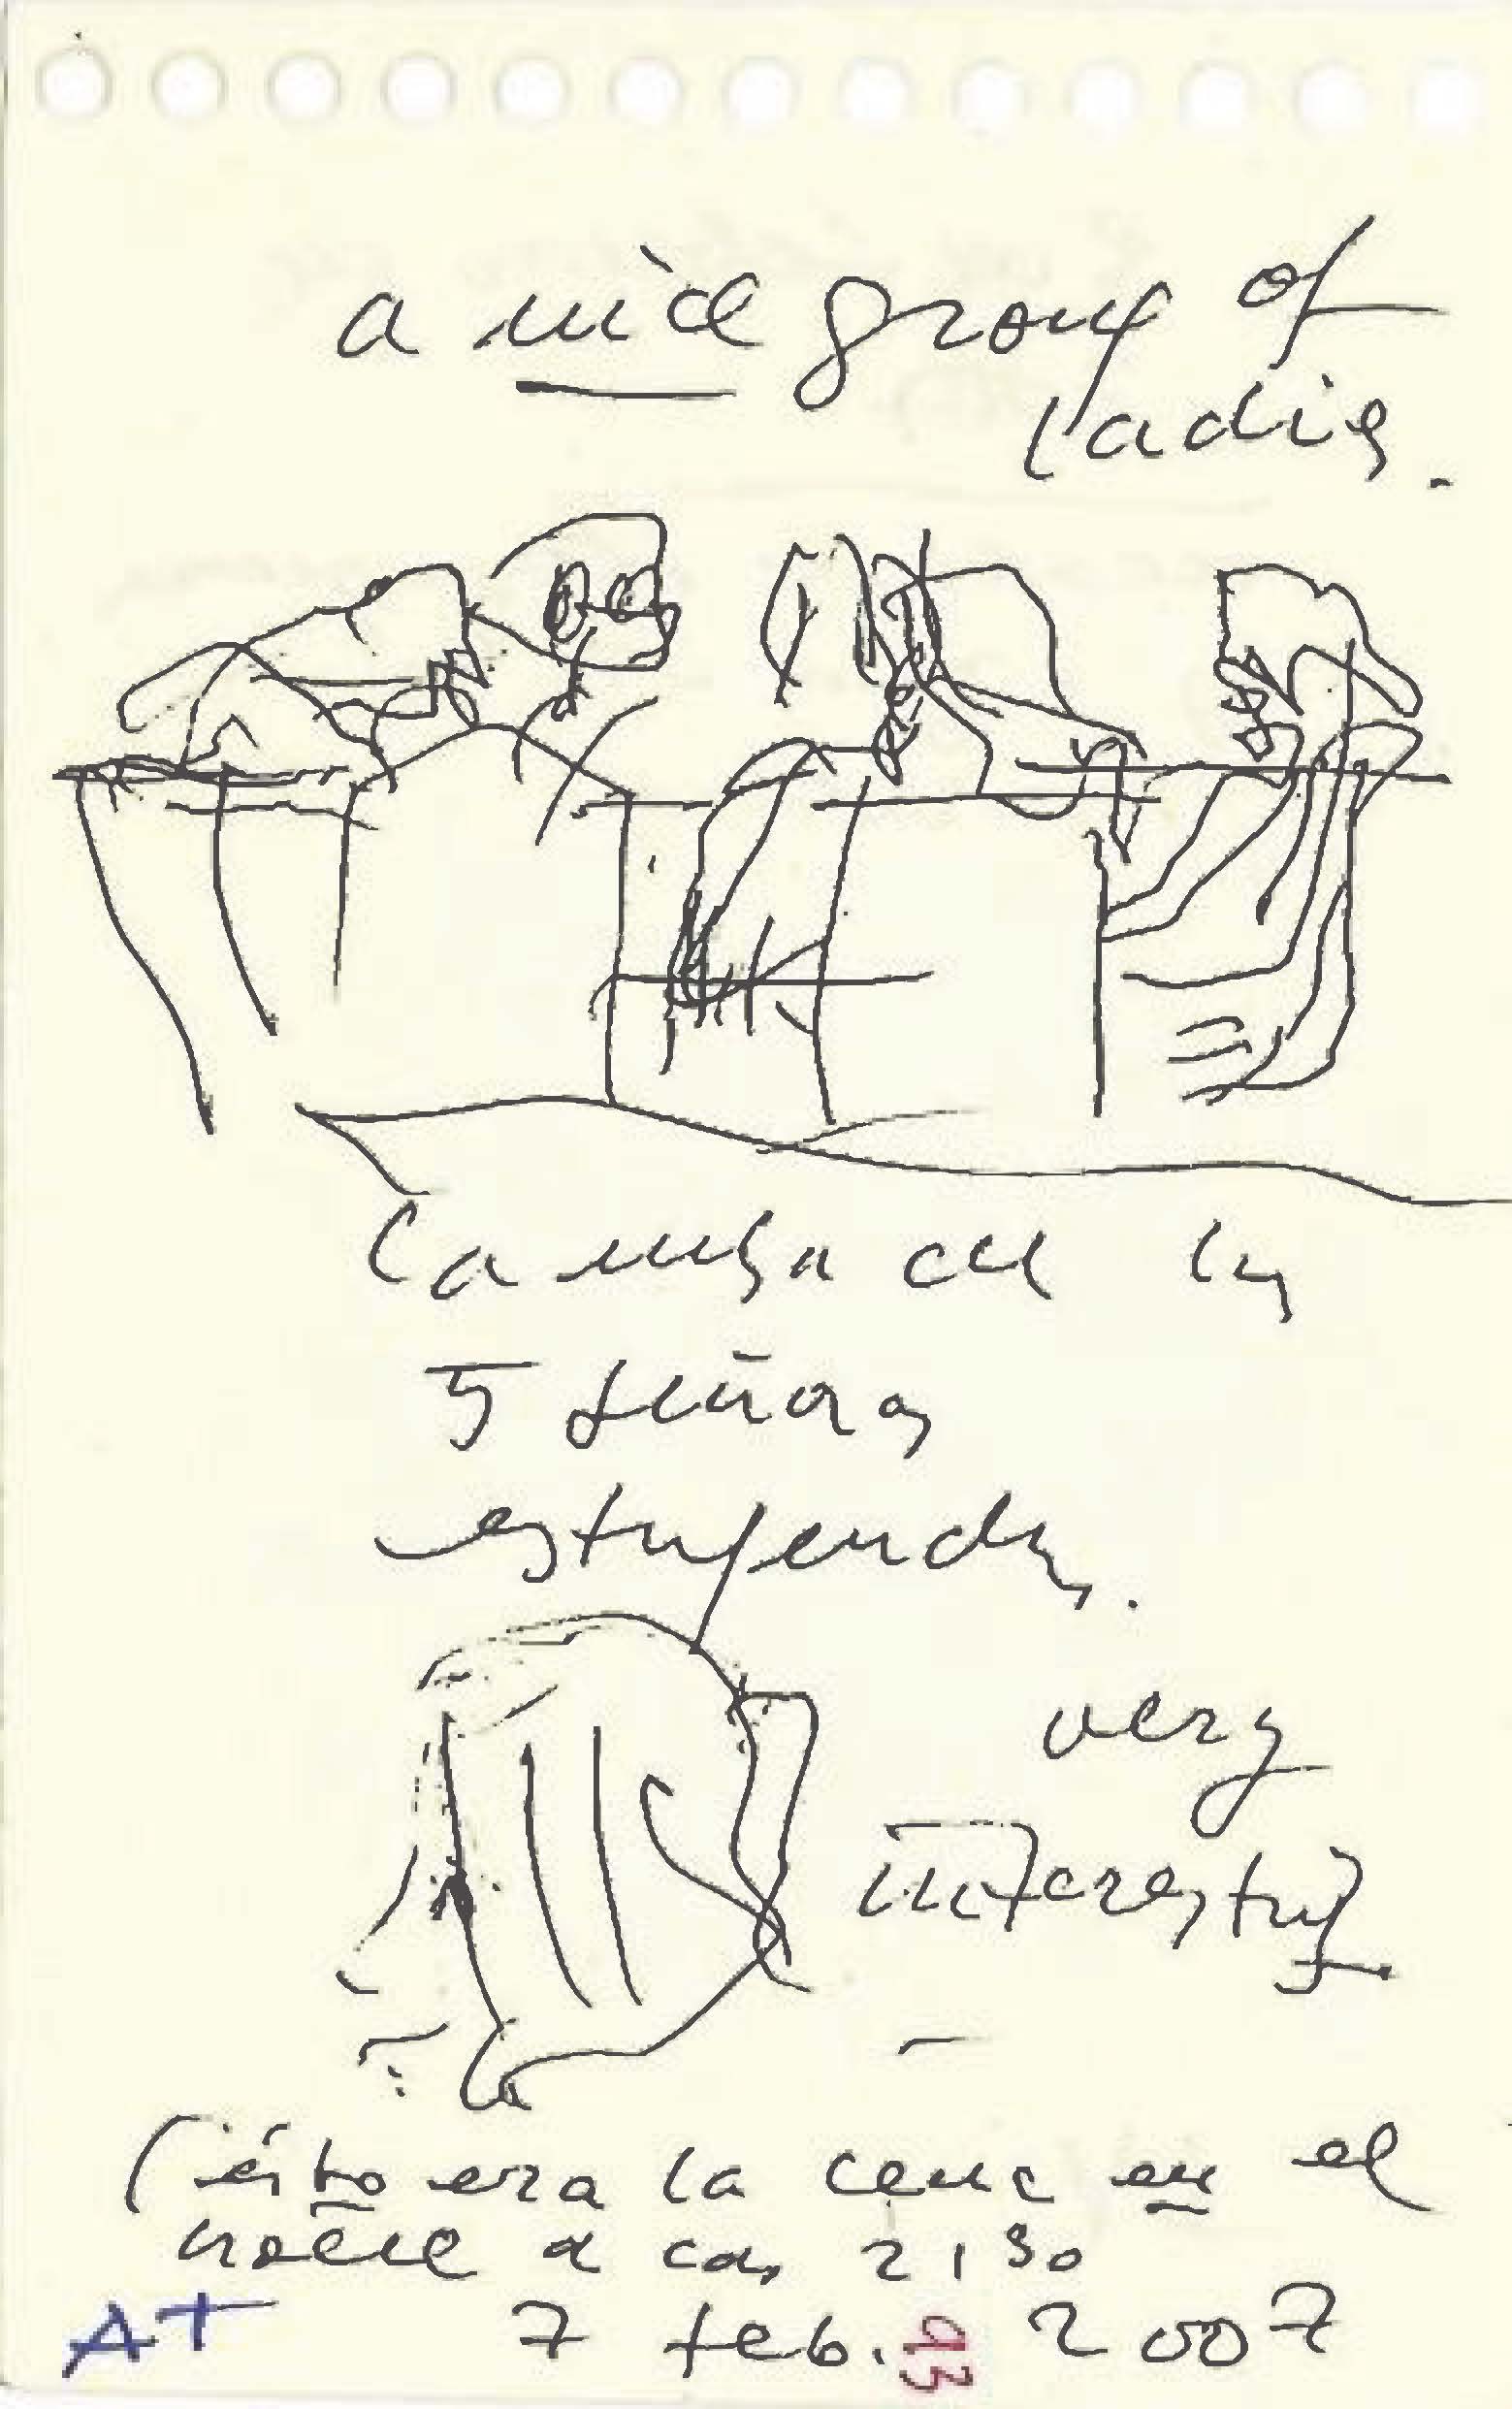 a nice group of
ladies.
La mesa de las
5 señoras
estupendas.
very
interesting
(ésto era la cena en el
a las 21 30
AT 7 feb. 93 2007